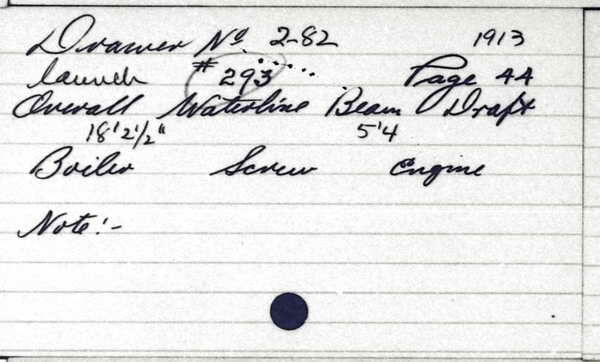 Drawer No. 2-82 1913
launch #293 Page 44
Overall Waterline Beam Draft
18'2½" 5'4
Boiler Screw Engine
Note:-